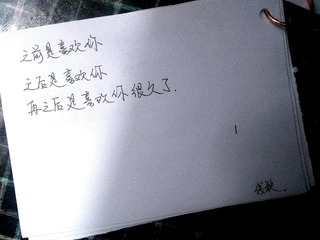 之前是喜欢你
之后是喜欢你
再之后是喜欢你很久了.